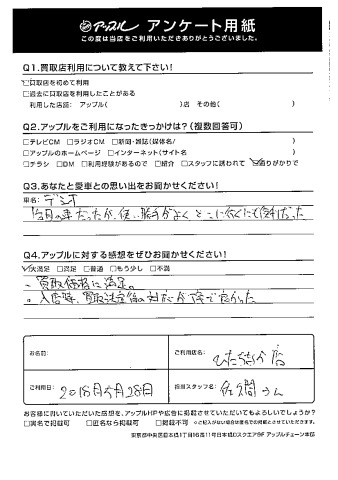 アップル アンケート用紙
この度は当店をご利用いただきありがとうございました。
Q1.買取店利用について教えて下さい!
☑買取店を初めて利用
□過去に買取店を利用したことがある
利用した店舗: アップル( )店 その他( )
Q2.アップルをご利用になったきっかけは?(複数回答可)
□テレビCM □ラジオCM □新聞・雑誌(媒体名/ )
□アップルのホームページ □インターネット(サイト名 )
□チラシ □DM □利用経験があるので □紹介 □スタッフに誘われて ☑通りがかりで
Q3.あなたと愛車との思い出をお聞かせください!
車名: デミオ
日の車だったが、使い勝手がよく どこに行くにも便利だった
Q4.アップルに対する感想をぜひお聞かせください!
☑大満足 □満足 □普通 □もう少し □不満
・買取価格に満足。
・入店時、買取決定後の対応が丁寧で良かった
お名前:
ご利用店名:
ひたちなか店
ご利用日:
2018年5月28日
担当スタッフ名:
佐間さん
お客様に頂いていただいた感想を、アップルHPや広告に掲載させていただいてもよろしいでしょうか?
□実名で掲載可 □匿名なら掲載可 □掲載不可 ※ご記入がない場合は匿名での掲載とさせていただきます。
東京都中央区日本橋1丁目16番11号日本橋Dスクエア9F アップルチェーン本部